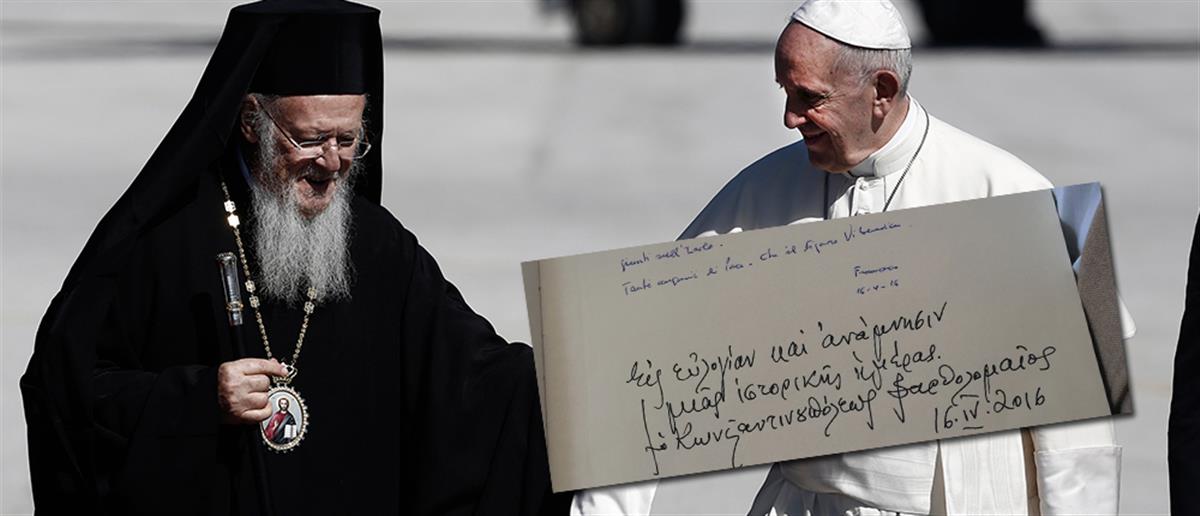 giunti nell'
Tanti auguri di Pace. Che il Signore Vi benedica.
Francesco
16-4-16
Εἰς εὐλογίαν καὶ ἀνάμνησιν
μιᾶς ἱστορικῆς ἡμέρας.
ὁ Κωνσταντινουπόλεως Βαρθολομαῖος
16.IV.2016